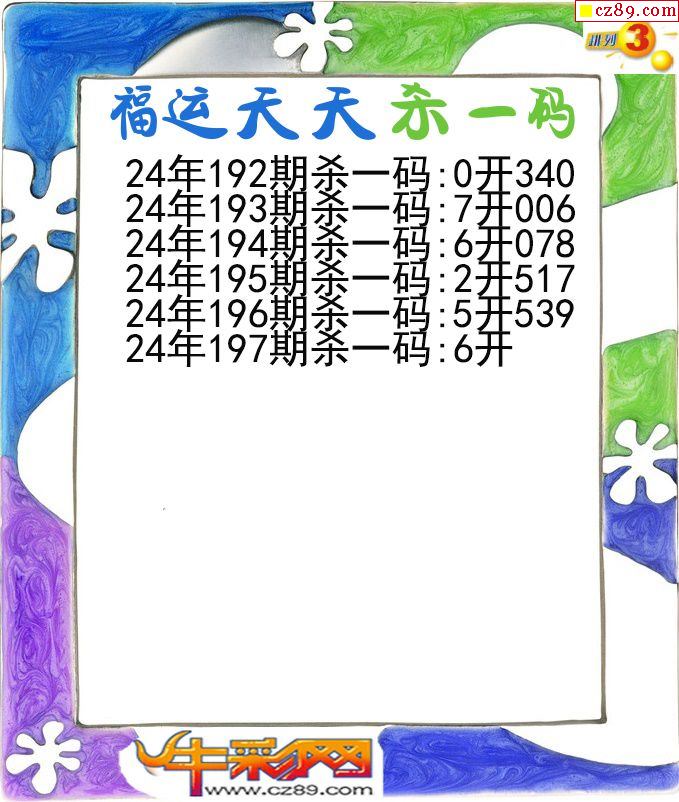 cz89.com
排列3
福运天天杀一码
24年192期杀一码:0开340
24年193期杀一码:7开006
24年194期杀一码:6开078
24年195期杀一码:2开517
24年196期杀一码:5开539
24年197期杀一码:6开
牛彩网
www.cz89.com